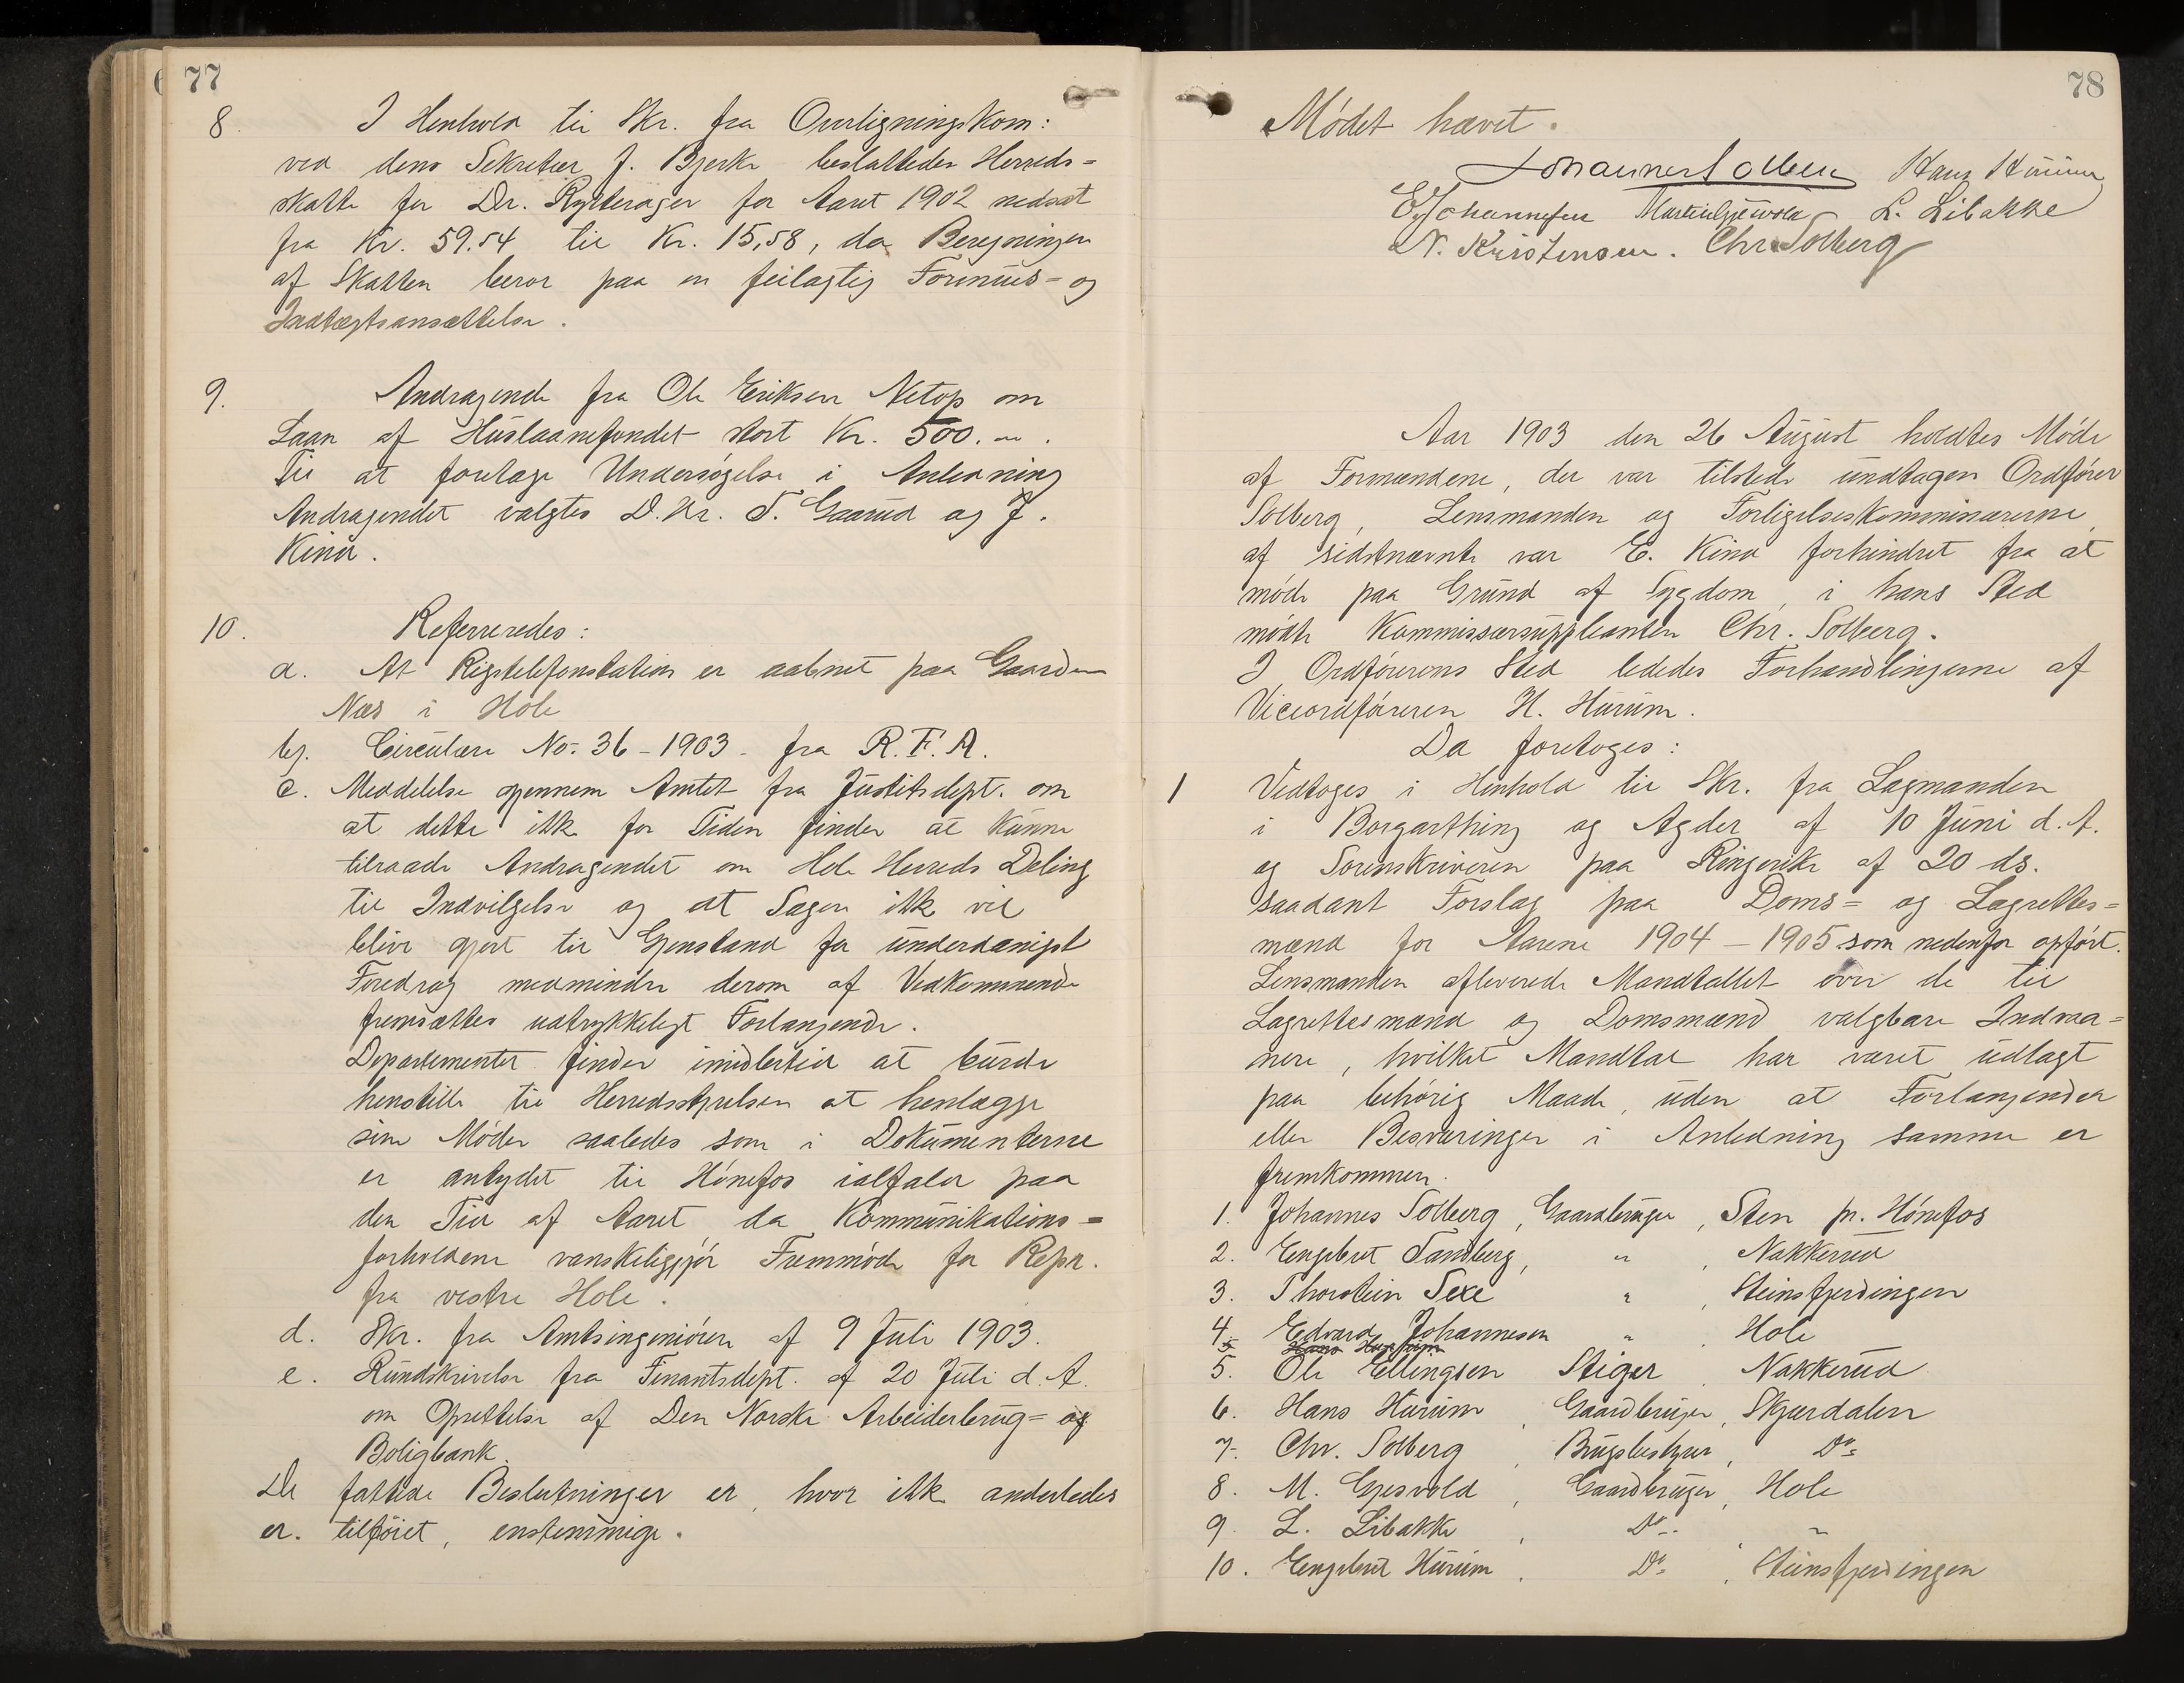 77
8. I Henhold til Skr. fra Overligningskom:
ved dens Sekretær J. Bjerke besluttedes Herreds=
skatte for Dr. Rytterager for Aaret 1902 nedsat
fra Kr. 59.54 til Kr. 15,58, da Beregningen
af Skatten beror paa en feilagtig Formues= og
Indtægtsansættelse.
9. Andragende fra Ole Eriksen Netop om
Laan af Huslaanefondet stort Kr. 500.
Til at foretage Undersøgelse i Anledning
Andragendet valgtes D.Hr. T. Gaarud og J.
Kind.
10. Refereredes:
a. At Rigstelefonstation er aabnet paa Gaarden
Næs i Hole
b. Circulære No. 36 - 1903 - fra R.F.A.
c. Meddelelse gjennem Amtet fra Justitsdept. om
at dette ikke for Tiden finder at kunne
tilraade Andragendet om Hole Herreds Deling
til Indvilgelse og at Sagen ikke vil
blive gjort til Gjenstand for underdanigst
Foredrag medmindre derom af Vedkommende
fremsættes udtrykkeligt Forlangende.
Departementet finder imidlertid at burde
henstille til Herredsstyrelsen at henlægge
sine Møder saaledes som i Dokumenterne
er antydet til Hønefos ialfald paa
den Tid af Aaret da Kommunikations=
forholdene vanskeliggjør Fremmøde for Repr.
fra vestre Hole.
d. Skr. fra Amtsingeniøren af 9 Juli 1903.
e. Rundskrivelse fra Finantsdept. af 20 Juli d.A.
om Oprettelse af Den Norske Arbeiderbrug= og
Boligbank.
De fattede Beslutninger er, hvor ikke anderledes
er tilføiet, enstemmige.
78
Mødet hævet.
Johannes Solberg Hans Hurum
E. Johannesen Martin Gjesvold L. Libakke
N. Kristensen. Chr. Solberg
Aar 1903 den 26 August holdtes Møde
af Formændene, der var tilstede undtagen Ordfører
Solberg, Lensmanden og Forligelseskommisærerne,
af sidstnævnte var E. Kind forhindret fra at
møde paa Grund af Sygdom, i hans Sted
mødte Kommissærsuppleanten Chr. Solberg.
I Ordførerens Sted lededes Forhandlingerne af
Viceordføreren H. Hurum.
Da foretoges:
1 Vedtoges i Henhold til Skr. fra Lagmanden
i Borgarthing og Agder af 10 Juni d.A.
og Sorenskriveren paa Ringerike af 20 ds.
saadant Forslag paa Doms= og Lagrettes=
mænd for Aarene 1904 - 1905 som nedenfor opført.
Lensmanden afleverede Mandtallet over de til
Lagrettesmænd og Domsmænd valgbare Indvaa=
nere, hvilket Mandtal har været udlagt
paa behørig Maade, uden at Forlangender
eller Besværinger i Anledning samme er
fremkommen.
1. Johannes Solberg, Gaardbruger, Sten pr. Hønefos
2. Engebret Sandberg, " , Nakkerud
3. Thorstein Sexe " , Steinsfjerdingen
4. Edvard Johannesen " Hole
5 Hans Hurum
5. Ole Ellingsen Stiger, Nakkerud
6. Hans Hurum, Gaardbruger, Skjærdalen
7. Chr. Solberg, Brugsbestyrer, Do
8. M. Gjesvold, Gaardbruger, Hole
9. L. Libakke, Do "
10. Engebret Hurum, Do, Steinsfjerdingen